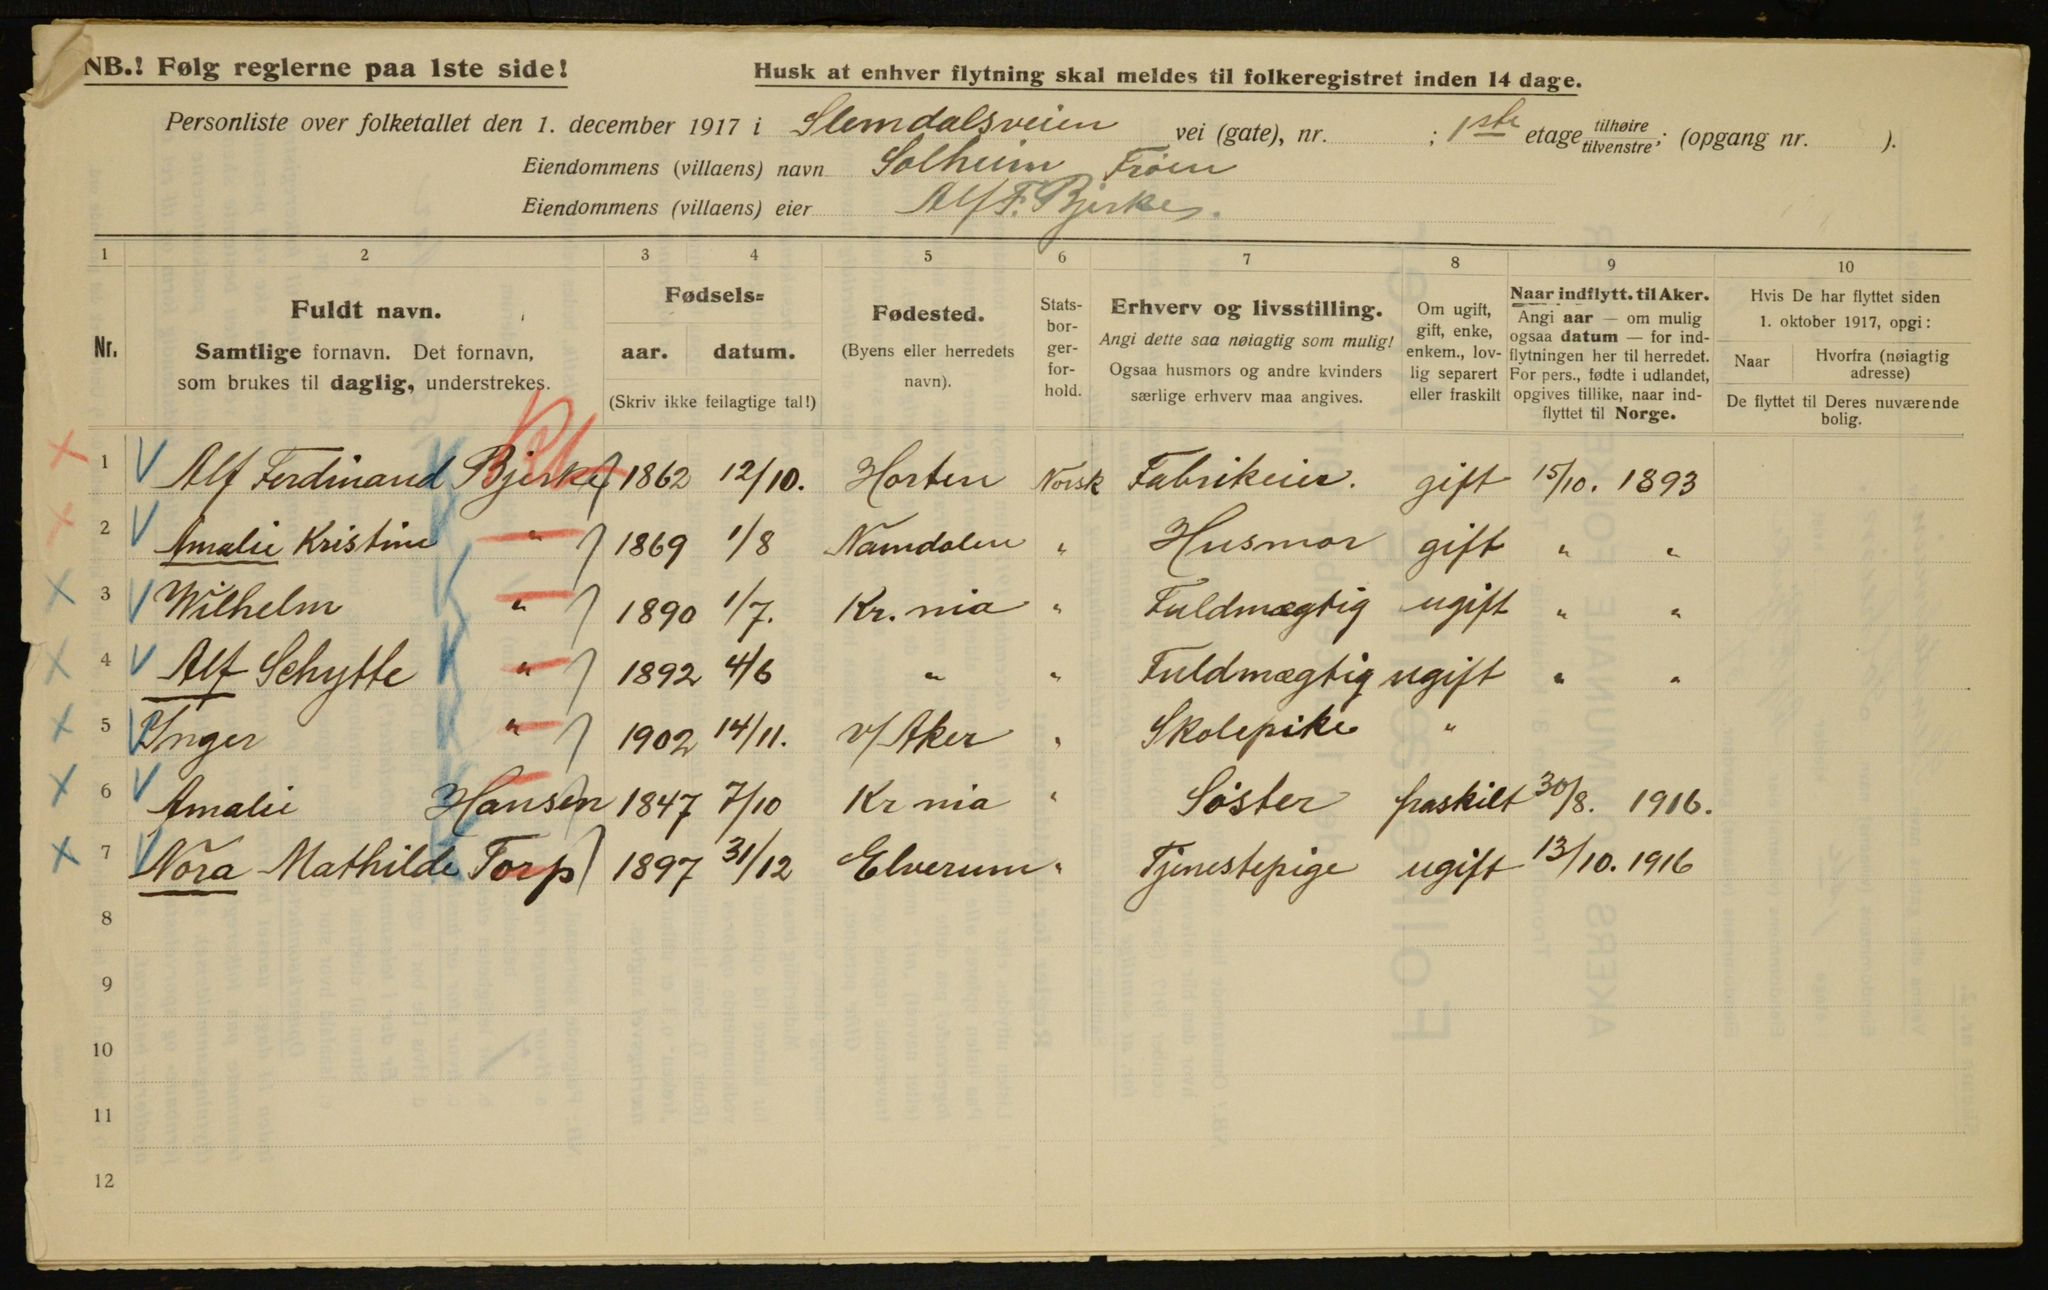 NB.! Følg reglerne paa 1ste side!
Husk at enhver flytning skal meldes til folkeregistret inden 14 dage.
Personliste over folketallet den 1. december 1917 i Slemdalsveien vei (gate), nr. ; 1ste etage tilhøire tilvenstre; (opgang nr. ).
Eiendommens (villaens) navn Solheim Frøen
Eiendommens (villaens) eier Alf F. Bjerke.
1 2 3 4 5 6 7 8 9 10
Nr.
Fuldt navn.
Samtlige fornavn. Det fornavn,
som brukes til daglig, understrekes.
Fødsels=
aar. datum.
(Skriv ikke feilagtige tal!)
Fødested.
(Byens eller herredets
navn).
Stats-
bor-
ger-
for-
hold.
Erhverv og livsstilling.
Angi dette saa nøiagtig som mulig!
Ogsaa husmors og andre kvinders
særlige erhverv maa angives.
Om ugift,
gift, enke,
enkem., lov-
lig separert
eller fraskilt
Naar indflytt. til Aker.
Angi aar — om mulig
ogsaa datum — for ind-
flytningen her til herredet.
For pers., fødte i udlandet,
opgives tillike, naar ind-
flyttet til Norge.
Hvis De har flyttet siden
1. oktober 1917, opgi:
Naar
Hvorfra (nøiagtig
adresse)
De flyttet til Deres nuværende
bolig.
1 Alf Ferdinand Bjerke 1862 12/10. Horten Norsk Fabrikeier. gift 15/10. 1893
2 Amalie Kristine " 1869 1/8 Namdalen " Husmor gift " "
3 Wilhelm " 1890 1/7. Kr.nia " Fuldmægtig ugift " "
4 Alf Schytte " 1892 4/6 " " Fuldmægtig ugift " "
5 Inger " 1902 14/11. v/Aker " Skolepike "
6 Amalie Hansen 1847 7/10 Kr nia " Søster fraskilt 30/8. 1916.
7 Nora Mathilde Torp 1897 31/12 Elverum " Tjenestepige ugift 13/10. 1916
8
9
10
11
12